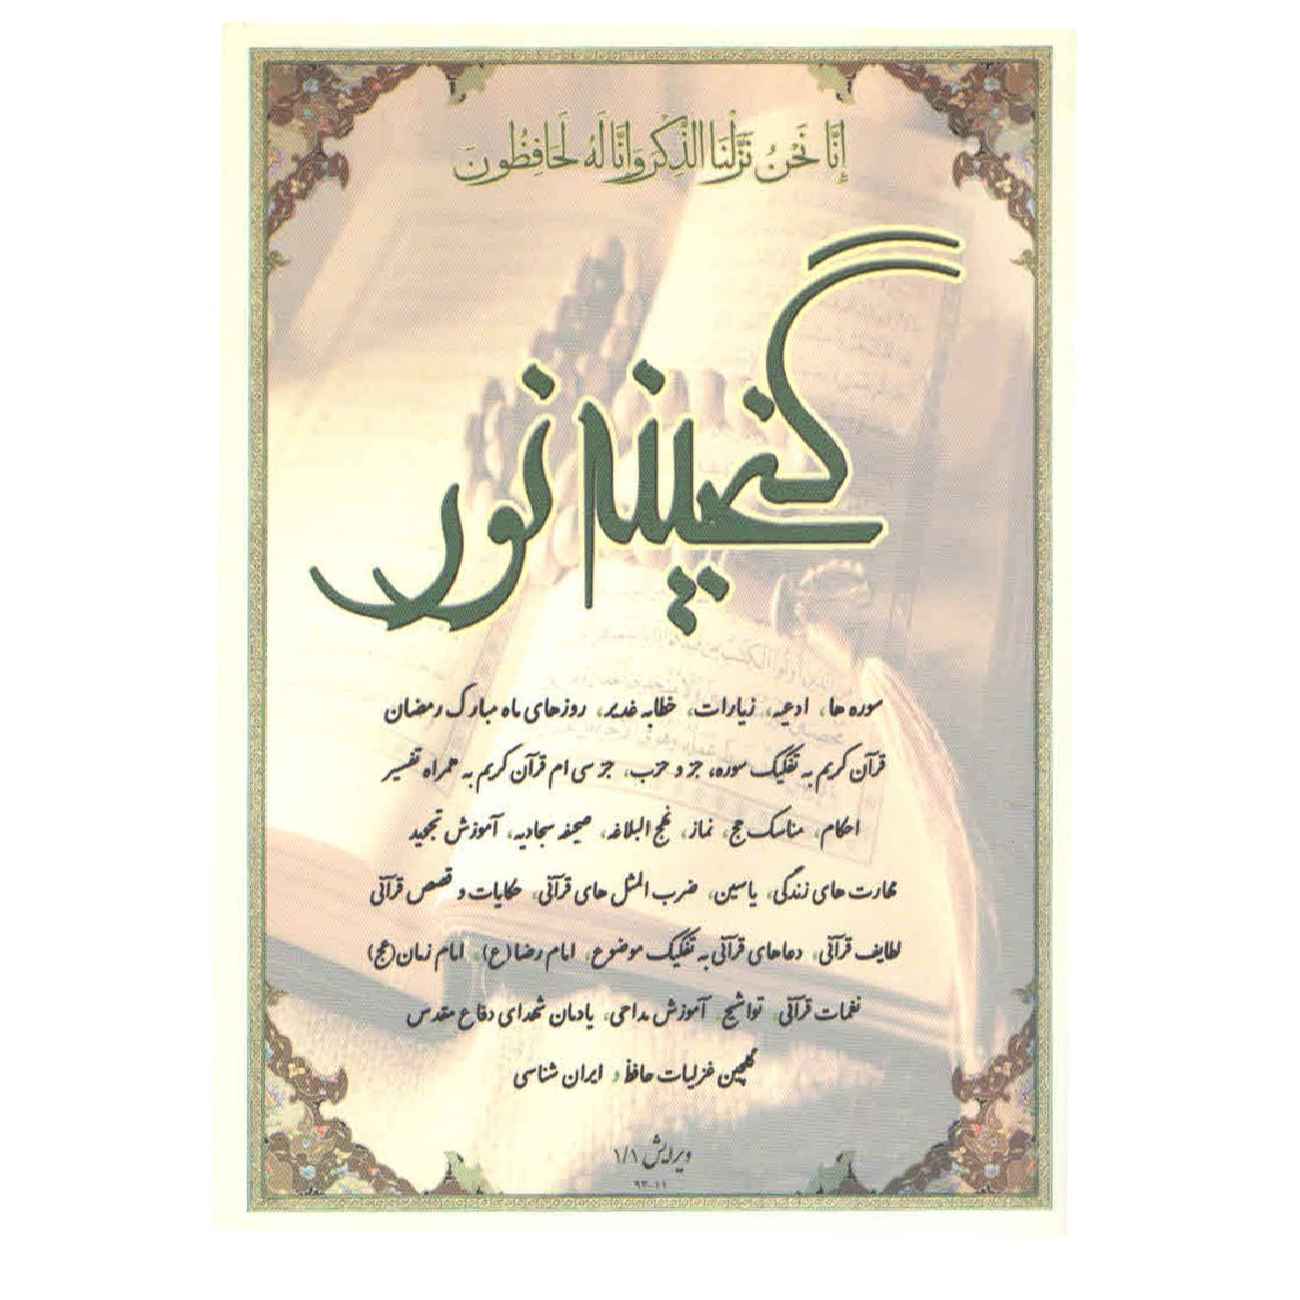 إِنَّا نَحْنُ نَزَّلْنَا الذِّكْرَ وَإِنَّا لَهُ لَحَافِظُونَ
گنجینه نور
سوره ها، ادعیه، زیارات، خطابه غدیر، روزهای ماه مبارک رمضان
قرآن کریم به تفکیک سوره، جز و حزب، جز سی ام قرآن کریم به همراه تفسیر
احکام، مناسک حج، نماز، نهج البلاغه، صحیفه سجادیه، آموزش تجوید
مهارت های زندگی، یاسین، ضرب المثل های قرآنی، حکایات و قصص قرآنی
لطایف قرآنی، دعاهای قرآنی به تفکیک موضوع، امام رضا(ع)، امام زمان(عج)
نغمات قرآنی، تواشیح، آموزش مداحی، یادمان شهدای دفاع مقدس
گلچین غزلیات حافظ و ایران شناسی
ویرایش ۱/۱
۹۳-۱۱